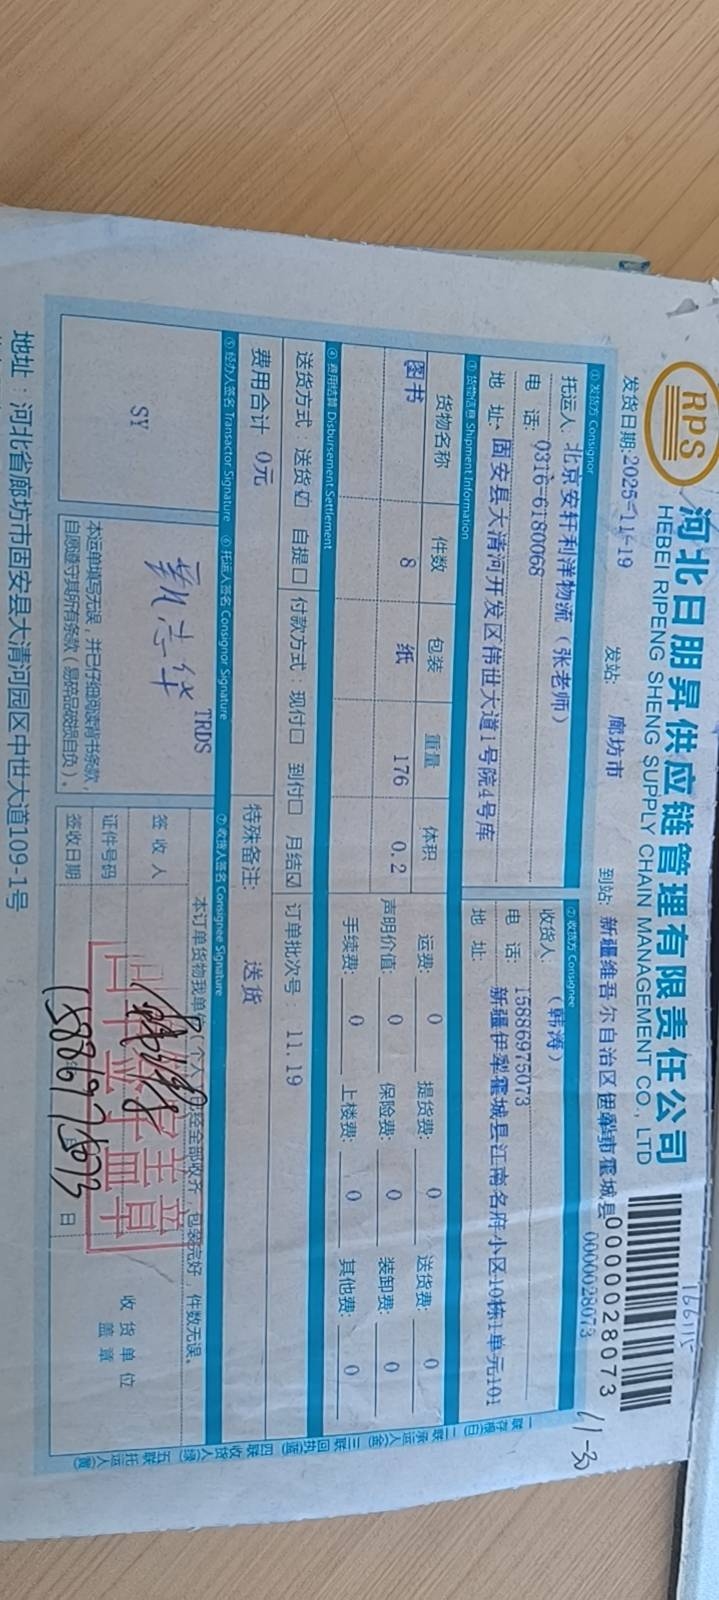 RPS
河北日朋昇供应链管理有限责任公司
HEBEI RIPENG SHENG SUPPLY CHAIN MANAGEMENT CO., LTD
166115
0000028073
发货日期:2025-11-19 发站: 廊坊市 到站: 新疆维吾尔自治区伊犁市霍城县
0000028073
11-30
① 发货方 Consignor
② 收货方 Consignee
托运人: 北京安轩利洋物流（张老师）
收货人: （韩涛）
电 话: 0316-6180068
电 话: 15886975073
地 址: 固安县大清河开发区伟世大道1号院4号库
地 址: 新疆伊犁霍城县江南名府小区10栋1单元101
③ 货物信息 Shipment Information
货物名称 件数 包装 重量 体积
图书 8 纸 176 0.2
运费: 0 提货费: 0 送货费: 0
声明价值: 0 保险费: 0 装卸费: 0
手续费: 0 上楼费: 0 其他费: 0
④ 费用结算 Disbursement Settlement
送货方式: 送货☑ 自提☐ 付款方式: 现付☐ 到付☐ 月结☑ 订单批次号: 11.19
费用合计 0元 特殊备注: 送货
⑤ 经办人签名 Transactor Signature ⑥ 托运人签名 Consignor Signature ⑦ 收货人签名 Consignee Signature
SY
TRDS
本运单填写无误，并已仔细阅读背书条款，
自愿遵守其所有条款（易碎品破损自负）。
本订单货物我单位（个人）已经全部收齐，包装完好，件数无误。
签收人
证件号码
签收日期
15886975073
日
收货单位
盖章
一联 存根(白) 二联 承运人(金) 三联 回执(蓝) 四联 收货人(绿) 五联 托运人(黄)
地址：河北省廊坊市固安县大清河园区中世大道109-1号